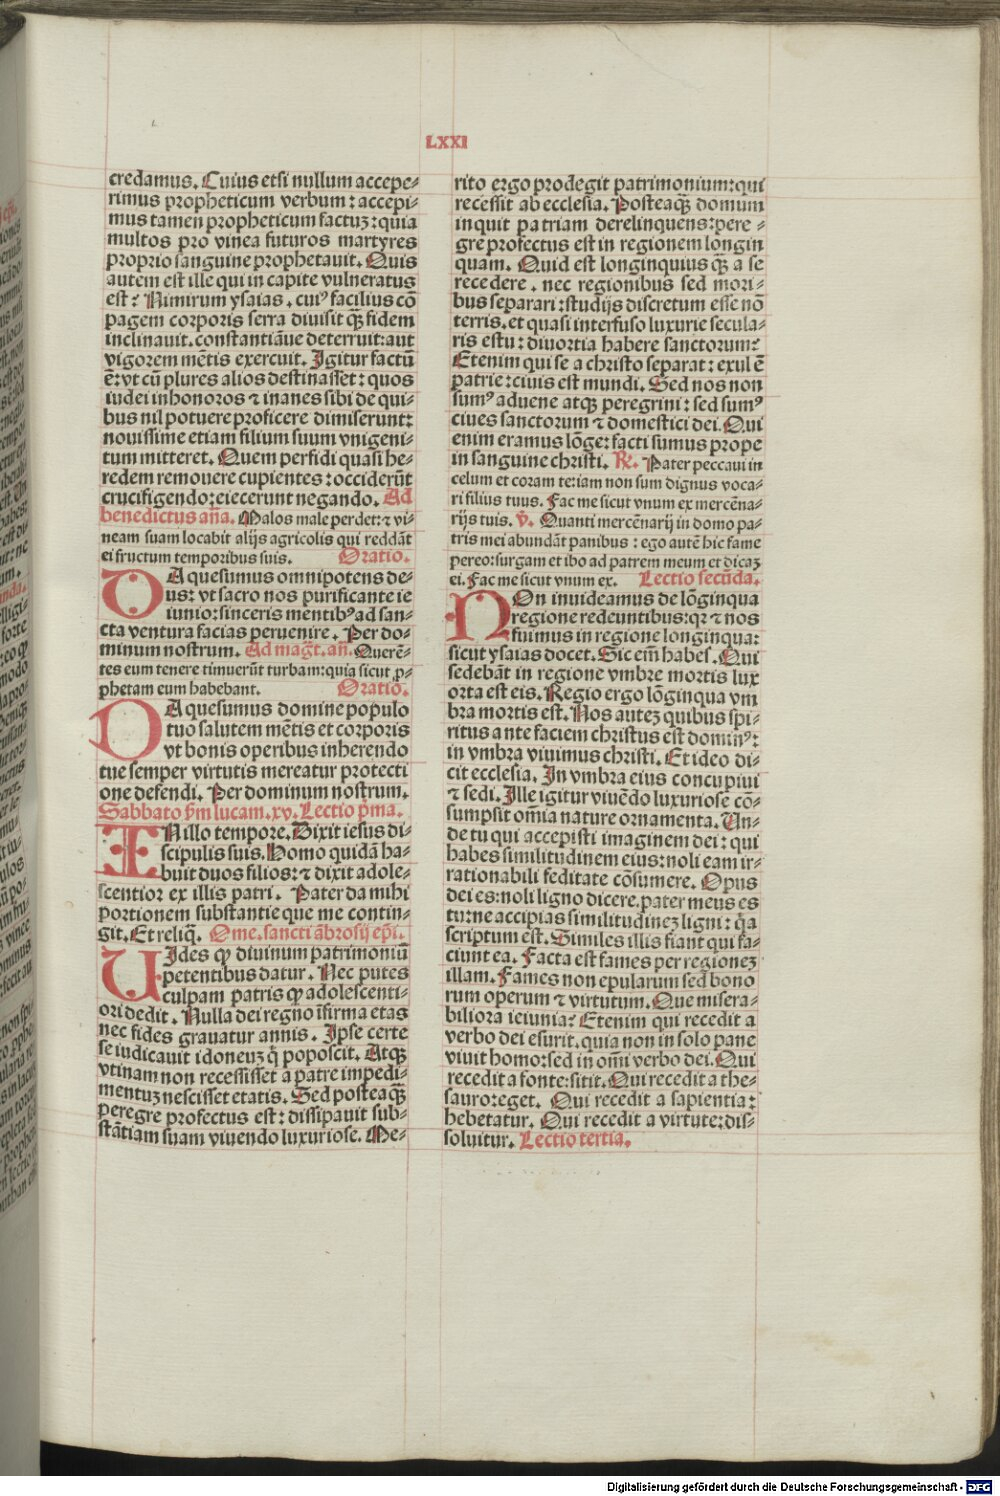 LXXI
credamus. Cuius etsi nullum accepe-
rimus propheticum verbum: accepi-
mus tamen propheticum factuʒ: quia
multos pro vinea futuros martyres
proprio sanguine prophetauit. Quis
autem est ille qui in capite vulneratus
est: Nimirum ysaias. cuiꝰ facilius cō
pagem corporis serra diuisit qꝫ̄ fidem
inclinauit. constantiāue deterruit: aut
vigorem mētis exercuit. Igitur factū
ē: vt cū plures alios destinasset: quos
iudei inhonoros ⁊ inanes sibi de qui-
bus nil potuere proficere dimiserunt:
nouissime etiam filium suum vnigeni-
tum mitteret. Quem perfidi quasi he-
redem remouere cupientes: occiderūt
crucifigendo: eiecerunt negando. Ad
benedictus an̄a. Malos male perdet: ⁊ vi-
neam suam locabit alijs agricolis qui reddāt
ei fructum temporibus suis. Oratio.
DA quesumus omnipotens de-
us: vt sacro nos purificante ie
iunio: sinceris mentibꝰ ad san-
cta ventura facias peruenire. Per do-
minum nostrum. Ad maḡt. an̄. Querē-
tes eum tenere timuerūt turbam: quia sicut ꝓ-
phetam eum habebant. Oratio.
DA quesumus domine populo
tuo salutem mētis et corporis
vt bonis operibus inherendo
tue semper virtutis mereatur protecti
one defendi. Per dominum nostrum.
Sabbato ẜm lucam. xv. Lectio p̄ma.
IN illo tempore. Dixit iesus di-
scipulis suis. Homo quidā ha-
buit duos filios: ⁊ dixit adole-
scentior ex illis patri. Pater da mihi
portionem substantie que me contin-
git. Et reliq̄. Ome. sancti ābrosij ep̄i.
UIdes ꝙ diuinum patrimoniū
petentibus datur. Nec putes
culpam patris ꝙ adolescenti-
ori dedit. Nulla dei regno īfirma etas
nec fides grauatur annis. Ipse certe
se iudicauit idoneuʒ q̄ poposcit. Atqꝫ
vtinam non recessisset a patre impedi-
mentuʒ nescisset etatis. Sed posteaqꝫ̄
peregre profectus est: dissipauit sub-
stātiam suam viuendo luxuriose. Me-
rito ergo prodegit patrimonium: qui
recessit ab ecclesia. Posteaqꝫ̄ domum
inquit patriam derelinquens: pere-
gre profectus est in regionem longin
quam. Quid est longinquius qꝫ̄ a se
recedere. nec regionibus sed mori-
bus separari: studijs discretum esse nō
terris. et quasi interfuso luxurie secula-
ris estu: diuortia habere sanctorum:
Etenim qui se a christo separat: exul ē
patrie: ciuis est mundi. Sed nos non
sumꝰ aduene atqꝫ peregrini: sed sumꝰ
ciues sanctorum ⁊ domestici dei. Qui
enim eramus lōge: facti sumus prope
in sanguine christi. ℟. Pater peccaui in
celum et coram te: iam non sum dignus voca-
ri filius tuus. Fac me sicut vnum ex mercēna-
rijs tuis. ℣. Quanti mercēnarij in domo pa-
tris mei abundāt panibus: ego autē hic fame
pereo: surgam et ibo ad patrem meum et dicaʒ
ei. Fac me sicut vnum ex. Lectio secūda.
NOn inuideamus de lōginqua
regione redeuntibus: qr̄ ⁊ nos
fuimus in regione longinqua:
sicut ysaias docet. Sic em̄ habes. Qui
sedebāt in regione vmbre mortis lux
orta est eis. Regio ergo lōginqua vm
bra mortis est. Nos auteʒ quibus spi-
ritus ante faciem christus est dominꝰ:
in vmbra viuimus christi. Et ideo di-
cit ecclesia. In vmbra eius concupiui
⁊ sedi. Ille igitur viuēdo luxuriose cō-
sumpsit om̄ia nature ornamenta. Un-
de tu qui accepisti imaginem dei: qui
habes similitudinem eius: noli eam ir-
rationabili feditate cōsumere. Opus
dei es: noli ligno dicere. pater meus es
tu: ne accipias similitudineʒ ligni: q̄a
scriptum est. Similes illis fiant qui fa-
ciunt ea. Facta est fames per regioneʒ
illam. Fames non epularum sed bono
rum operum ⁊ virtutum. Que misera-
biliora ieiunia: Etenim qui recedit a
verbo dei esurit. quia non in solo pane
viuit homo: sed in om̄i verbo dei. Qui
recedit a fonte: sitit. Qui recedit a the-
sauro: eget. Qui recedit a sapientia:
hebetatur. Qui recedit a virtute: dis-
soluitur. Lectio tertia.
Digitalisierung gefördert durch die Deutsche Forschungsgemeinschaft - DFG